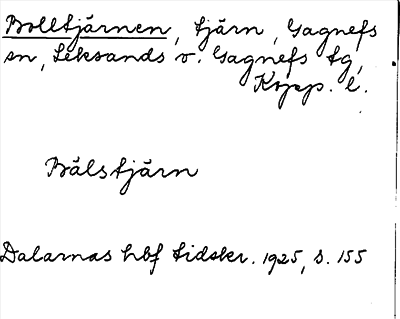 Bolltjärnen, tjärn, Gagnefs
sn, Leksands o. Gagnefs tg,
Kopp. l.
Bälstjärn
Dalarnas hbf tidskr. 1925, s. 155